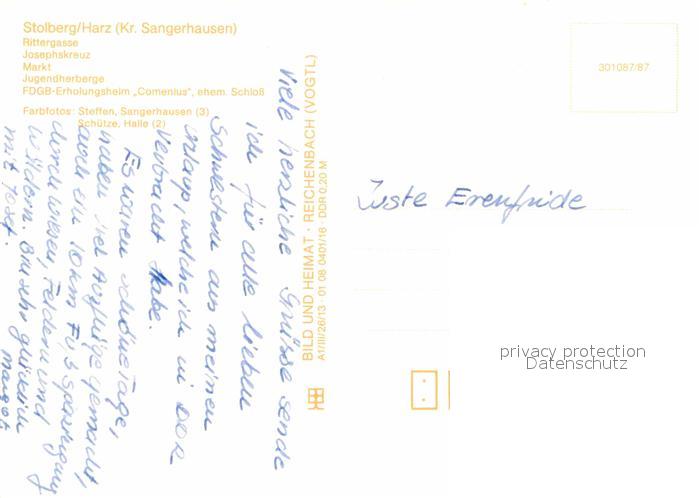 Stolberg/Harz (Kr. Sangerhausen)
Rittergasse
Josephskreuz
Markt
Jugendherberge
FDGB-Erholungsheim „Comenius“, ehem. Schloß
Farbfotos: Steffen, Sangerhausen (3)
Schütze, Halle (2)
Viele herzliche Grüsse sende
ich für alle lieben
Schwestern aus meinen
Urlaup, welche ich in DDR
Verbracht habe.
Es waren schöne Tage,
haben viel Ausflüge gemacht,
auch ein 10 km Fusspaziergang
durch wiesen, Feldern und
Wäldern. Bin sehr glücklich
mit Josef.
Margot
BILD UND HEIMAT · REICHENBACH (VOGTL)
A1/III/26/13 01 08 0401/16 DDR 0,20 M
301087/87
Erenfriede
privacy protection
Datenschutz